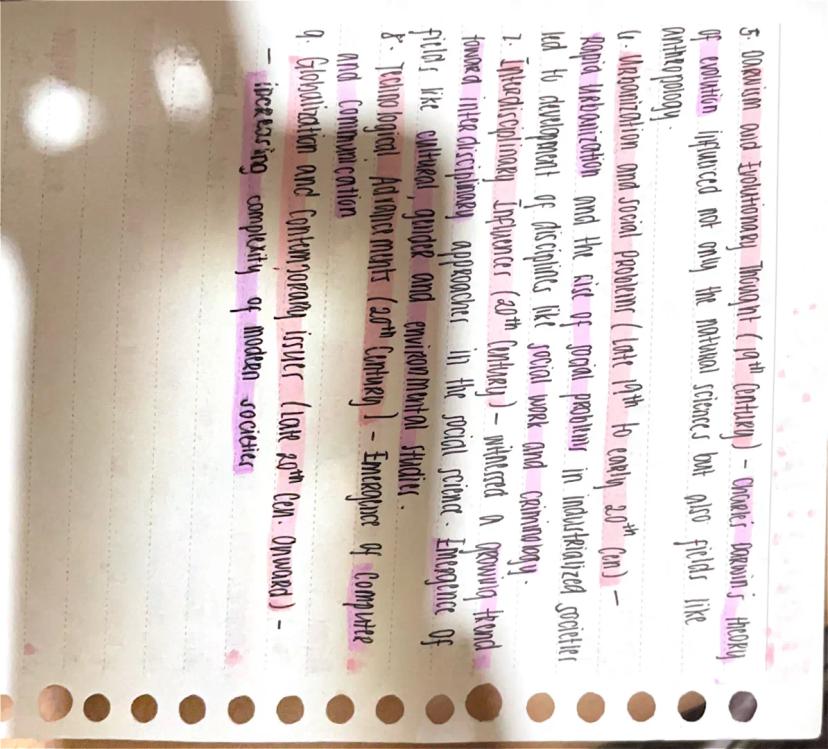 5. Darwinism and Evolutionary Thought (19th Century) - Charles Darwin's theory
of evolution influenced not only the natural sciences but also fields like
anthropology.
6. Urbanization and social Problems (Late 19th to early 20th Cen) -
Rapid Urbanization and the rise of social problems in industrialized societies
led to development of disciplines like social work and criminology.
7. Interdisciplinary Influences (20th Century) - witnessed a growing trend
toward interdisciplinary approaches in the social science. Emergence of
fields like cultural, gender and environmental studies.
8. Technological Advancements (20th Century) - Emergence of Computer
and Communication
9. Globalization and Contemporary issues (Late 20th Cen. Onward) -
- increasing complexity of modern societies